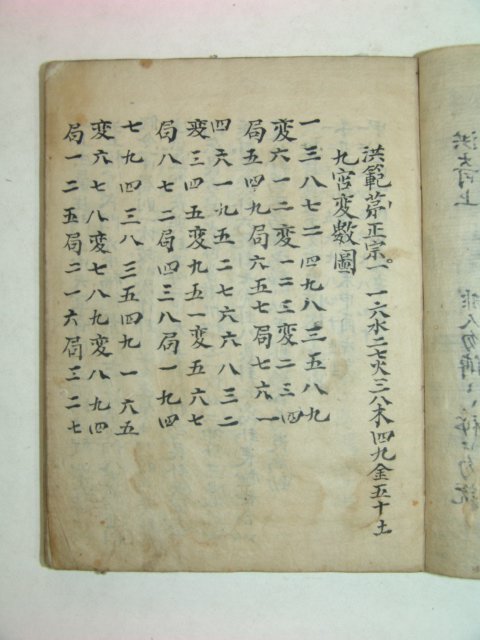 洪範茅正宗。一 一六水二七火三八木四九金五十土
九宮変數圖
一三八七二四九八三五八九
変六一二変一二三変二三四
局五四九局六五七局七六一
四六一九五二七六六八三二
変三四五変九五一変五六七
局八七二局四三八局一九四
七九四三八三五四九一六五
変六七八変七八九変八九四
局一二五局二一六局三二七